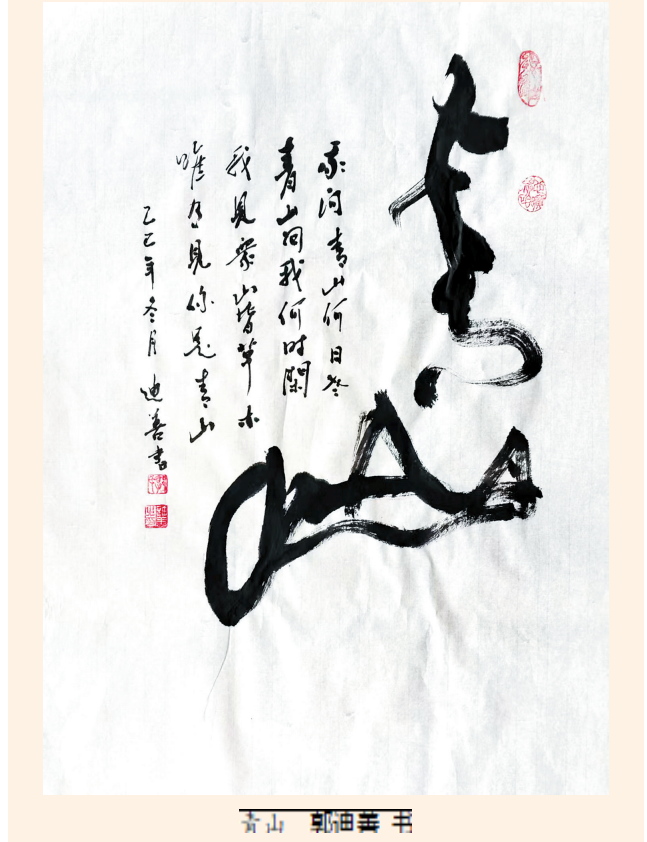 青山
我问青山何日老
青山问我何时闲
我见众山皆草木
唯有见你是青山
乙巳年冬月 迪善书
青山 郭迪善 书